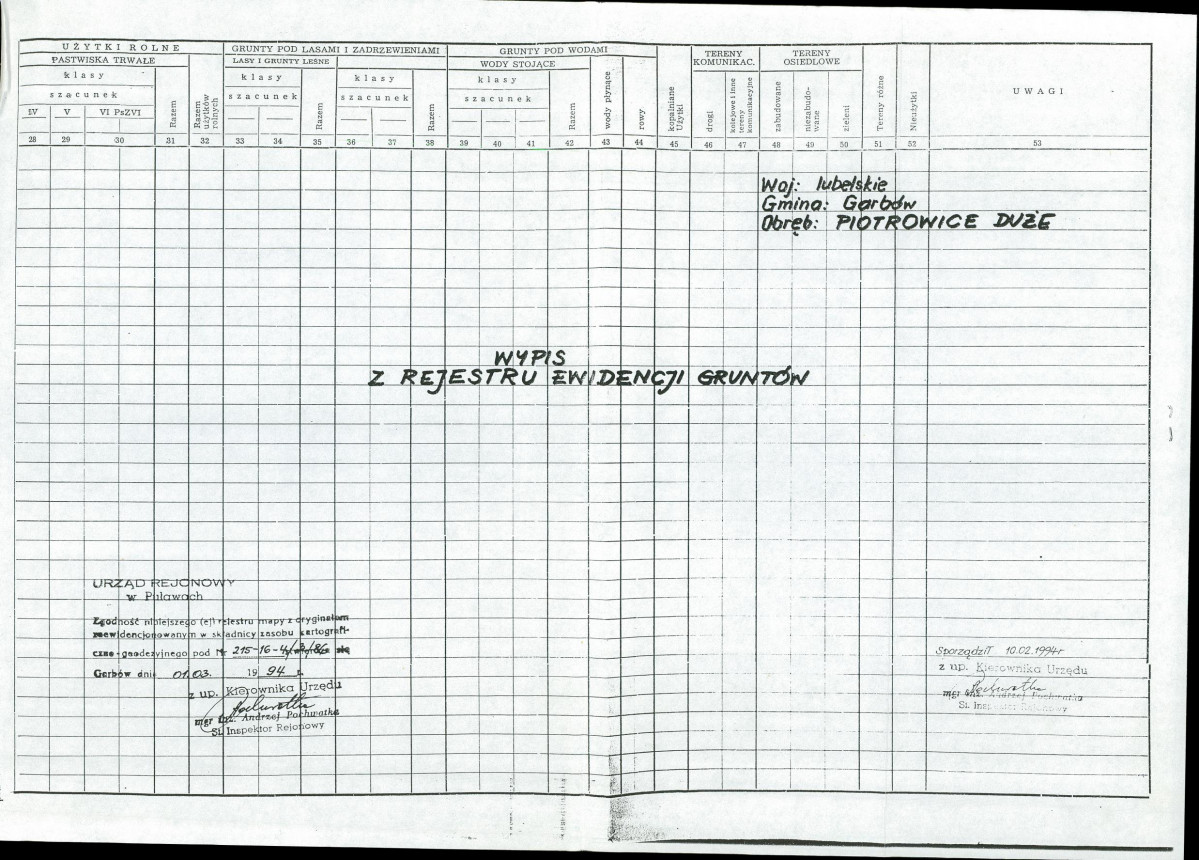 UŻYTKI ROLNE
PASTWISKA TRWAŁE
klasy
szacunek
IV V VI PsZVI
Razem
Razem użytków rolnych
GRUNTY POD LASAMI I ZADRZEWIENIAMI
LASY I GRUNTY LEŚNE
klasy
szacunek
Razem
klasy
szacunek
Razem
GRUNTY POD WODAMI
WODY STOJĄCE
klasy
szacunek
Razem
wody płynące
rowy
kopalniane Użytki
TERENY KOMUNIKAC.
drogi
kolejowe i inne tereny komunikacyjne
TERENY OSIEDLOWE
zabudowane
niezabudo-
wane
zieleni
Tereny różne
Nieużytki
UWAGI
28 29 30 31 32 33 34 35 36 37 38 39 40 41 42 43 44 45 46 47 48 49 50 51 52 53
Woj: lubelskie
Gmina: Garbów
Obręb: PIOTROWICE DUŻE
WYPIS
Z REJESTRU EWIDENCJI GRUNTÓW
URZĄD REJONOWY
w Puławach
Zgodność niniejszego (ej) rejestru mapy z oryginałem
zaewidencjonowanym w składnicy zasobu kartografi-
czno-geodezyjnego pod Nr 215-16-4/3/86
Garbów dnia 01.03. 1994 r.
z up. Kierownika Urzędu
mgr inż. Andrzej Pochwatka
St. Inspektor Rejonowy
Sporządził 10.02.1994r
z up. Kierownika Urzędu
mgr inż. Andrzej Pochwatka
St. Inspektor Rejonowy